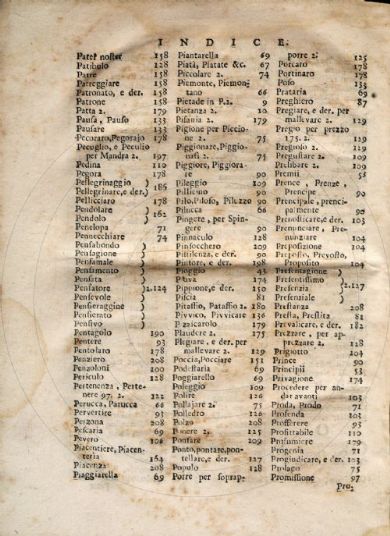 INDICE.
Pater noster 158
Patibulo 128
Patre 158
Patreggiare 158
Patronato, e der. 158
Patrone 158
Patta 2. 179
Pausa, Pauso 133
Pausare 133
Pecoraro, Pegoraio 178
Pecoglio, e Peculio
per Mandra 2. 197
Pedina 110
Pegora 178
Pellegrinaggio )
Pellegrinare, e der.) 186
Pellicciaro 178
Pendolare )
Pendolo ) 162
Penelopa 71
Pennecchiare 74
Pensabondo )
Pensagione )
Pensamale )
Pensamento )
Pensita )
Pensatore ) 2.124
Pensevole )
Pensieraggine )
Pensierato )
Pensivo )
Pentagolo 190
Pentere 93
Pentolaro 178
Penziero 208
Penzoloni 100
Periculo 128
Pertenenza, Perte-
nere 97. 2. 122
Perucca, Parucca 66
Pervertire 93
Perzona 208
Pescaria 69
Pevero 106
Piacentiere, Piacen-
teria 164
Piacenza 208
Piaggiarella 69
Piantarella 69
Piatà, Piatate &c. 67
Piccolare 2. 74
Piemonte, Piemon-
tano 66
Pietade in P.2. 9
Pietanza 2. 10
Pifania 2. 179
Pigione per Piccio-
ne 2. 75
Piggionare, Piggio-
nasi 2. 75
Piggiore, Piggiora-
re 90
Pileggio 109
Pillicino 90
Pilo, Piloso, Piluzzo 90
Pilucca 66
Pingere, per Spin-
gere 71
Pinnaculo 128
Pinzocchero 209
Pittilenza, e der. 90
Pintore, e der. 198
Pioggio 43
Piova 174
Pippione, e der. 130
Piscia 81
Pitaffio, Pataffio 2. 180
Pivvico, Pivvicare 136
Pizzacarolo 179
Plaudere 2. 175
Plegiare, e der. per
mallevare 2. 129
Poccia, Pocciare 151
Podestaria 69
Poggiarello 69
Poleggio 109
Polire 126
Pollajare 2. 75
Polledro 126
Polzo 208
Ponere 2. 125
Pontare 209
Ponto, pontare, pon-
tellare, e der. 127
Populo 128
Porre per soprap-
porre 2. 125
Porcaro 178
Portinaro 178
Poso 133
Prataria 69
Preghiero 87
Pregiare, e der. per
mallevare 2. 129
Pregio per prezzo
175. 2. 129
Pregiolo 2. 129
Pregustare 2. 109
Prelibare 2. 100
Premii 58
Prence, Prenze,
Prencipe 90
Prencipale, prenci-
palmente 90
Prenosticare, e der. 103
Prenunciare, Pre-
nunziare 104
Preposizione 104
Preposto, Prevosto,
Proposito 104
Presentagione )
Presenzia ) 2.127
Presenziale )
Prestanza 208
Presta, Prestita 82
Prevalicare, e der. 182
Prezzare, per ap-
prezzare 2. 128
Prigiotto 204
Prince 90
Principii 53
Privagione 174
Procedere per an-
dar avanti 103
Proda, Prodo 71
Profenda 103
Profferere 95
Profittabile 110
Profumiere 179
Progenia 71
Progiudicare, e der. 103
Prolago 75
Promissione 97
Pro2